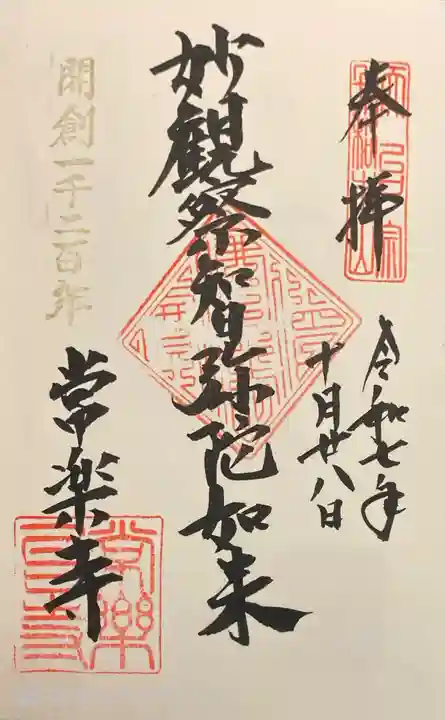 奉拝
令和七年
十月廿八日
妙観察智弥陀如来
開創一千二百年
常楽寺
常樂